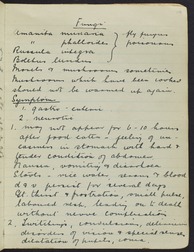 Fungi
Amanita muscaria } fly fungus
" phalloides } poisonous
Russula integra
Boletus luridus
Morels & mushrooms sometimes
Mushrooms which have been cooked
should not be warmed up again.
Symptoms
1. gastro-enteric
2. neurotic
1. may not appear for 6-10 hours
after food eaten - feeling of un-
easiness in stomach with hard &
tender condition of abdomen
Nausea, vomiting & diarrhoea
Stools: rice water, serous & blood
& v persist for several days
thirst & prostration, small pulse
laboured resp, leading on to death
without nerve complication
2. Twitchings, convulsions, delirium
disorders of vision & special sense,
dilatation of pupils, coma